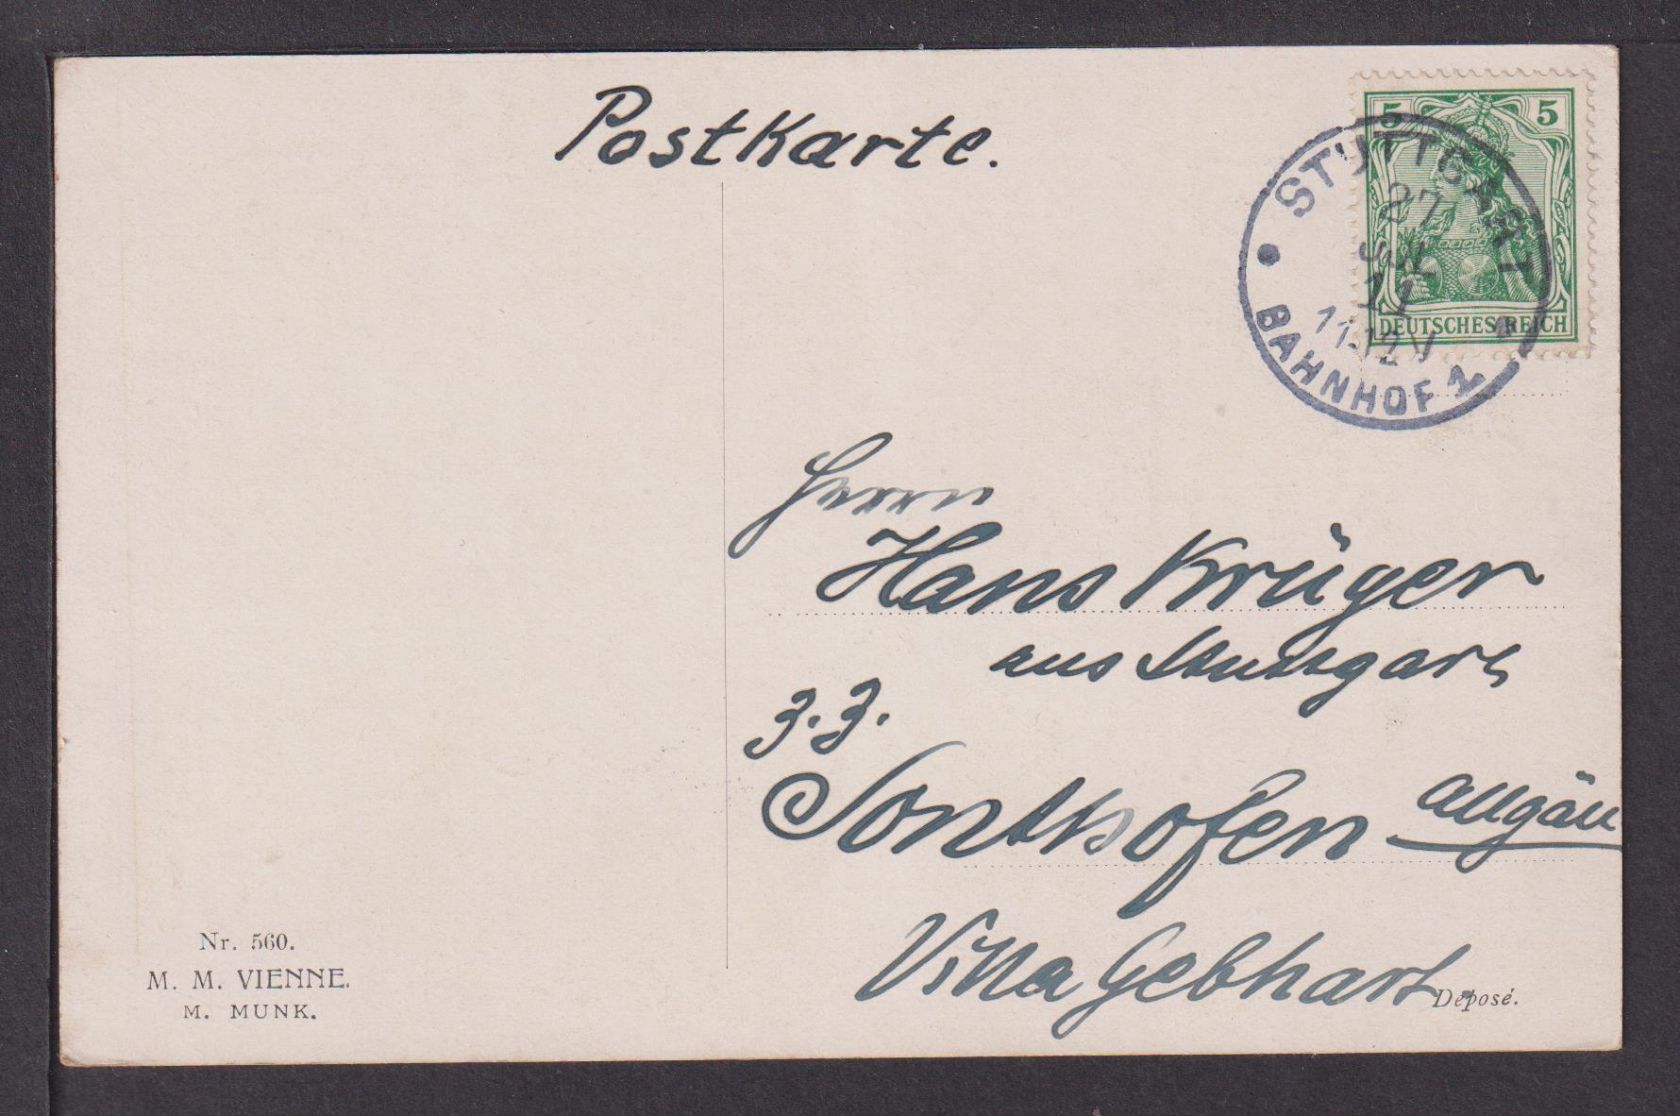 Postkarte.
5 5
STUTTGART
27
JUL
11
11-12 V
BAHNHOF 2
DEUTSCHES REICH
Herrn
Hans Krüger
aus Stuttgart
z. Z.
Sonthofen Allgäu
Villa Gebhart.
Nr. 560.
M. M. VIENNE.
M. MUNK.
Déposé.